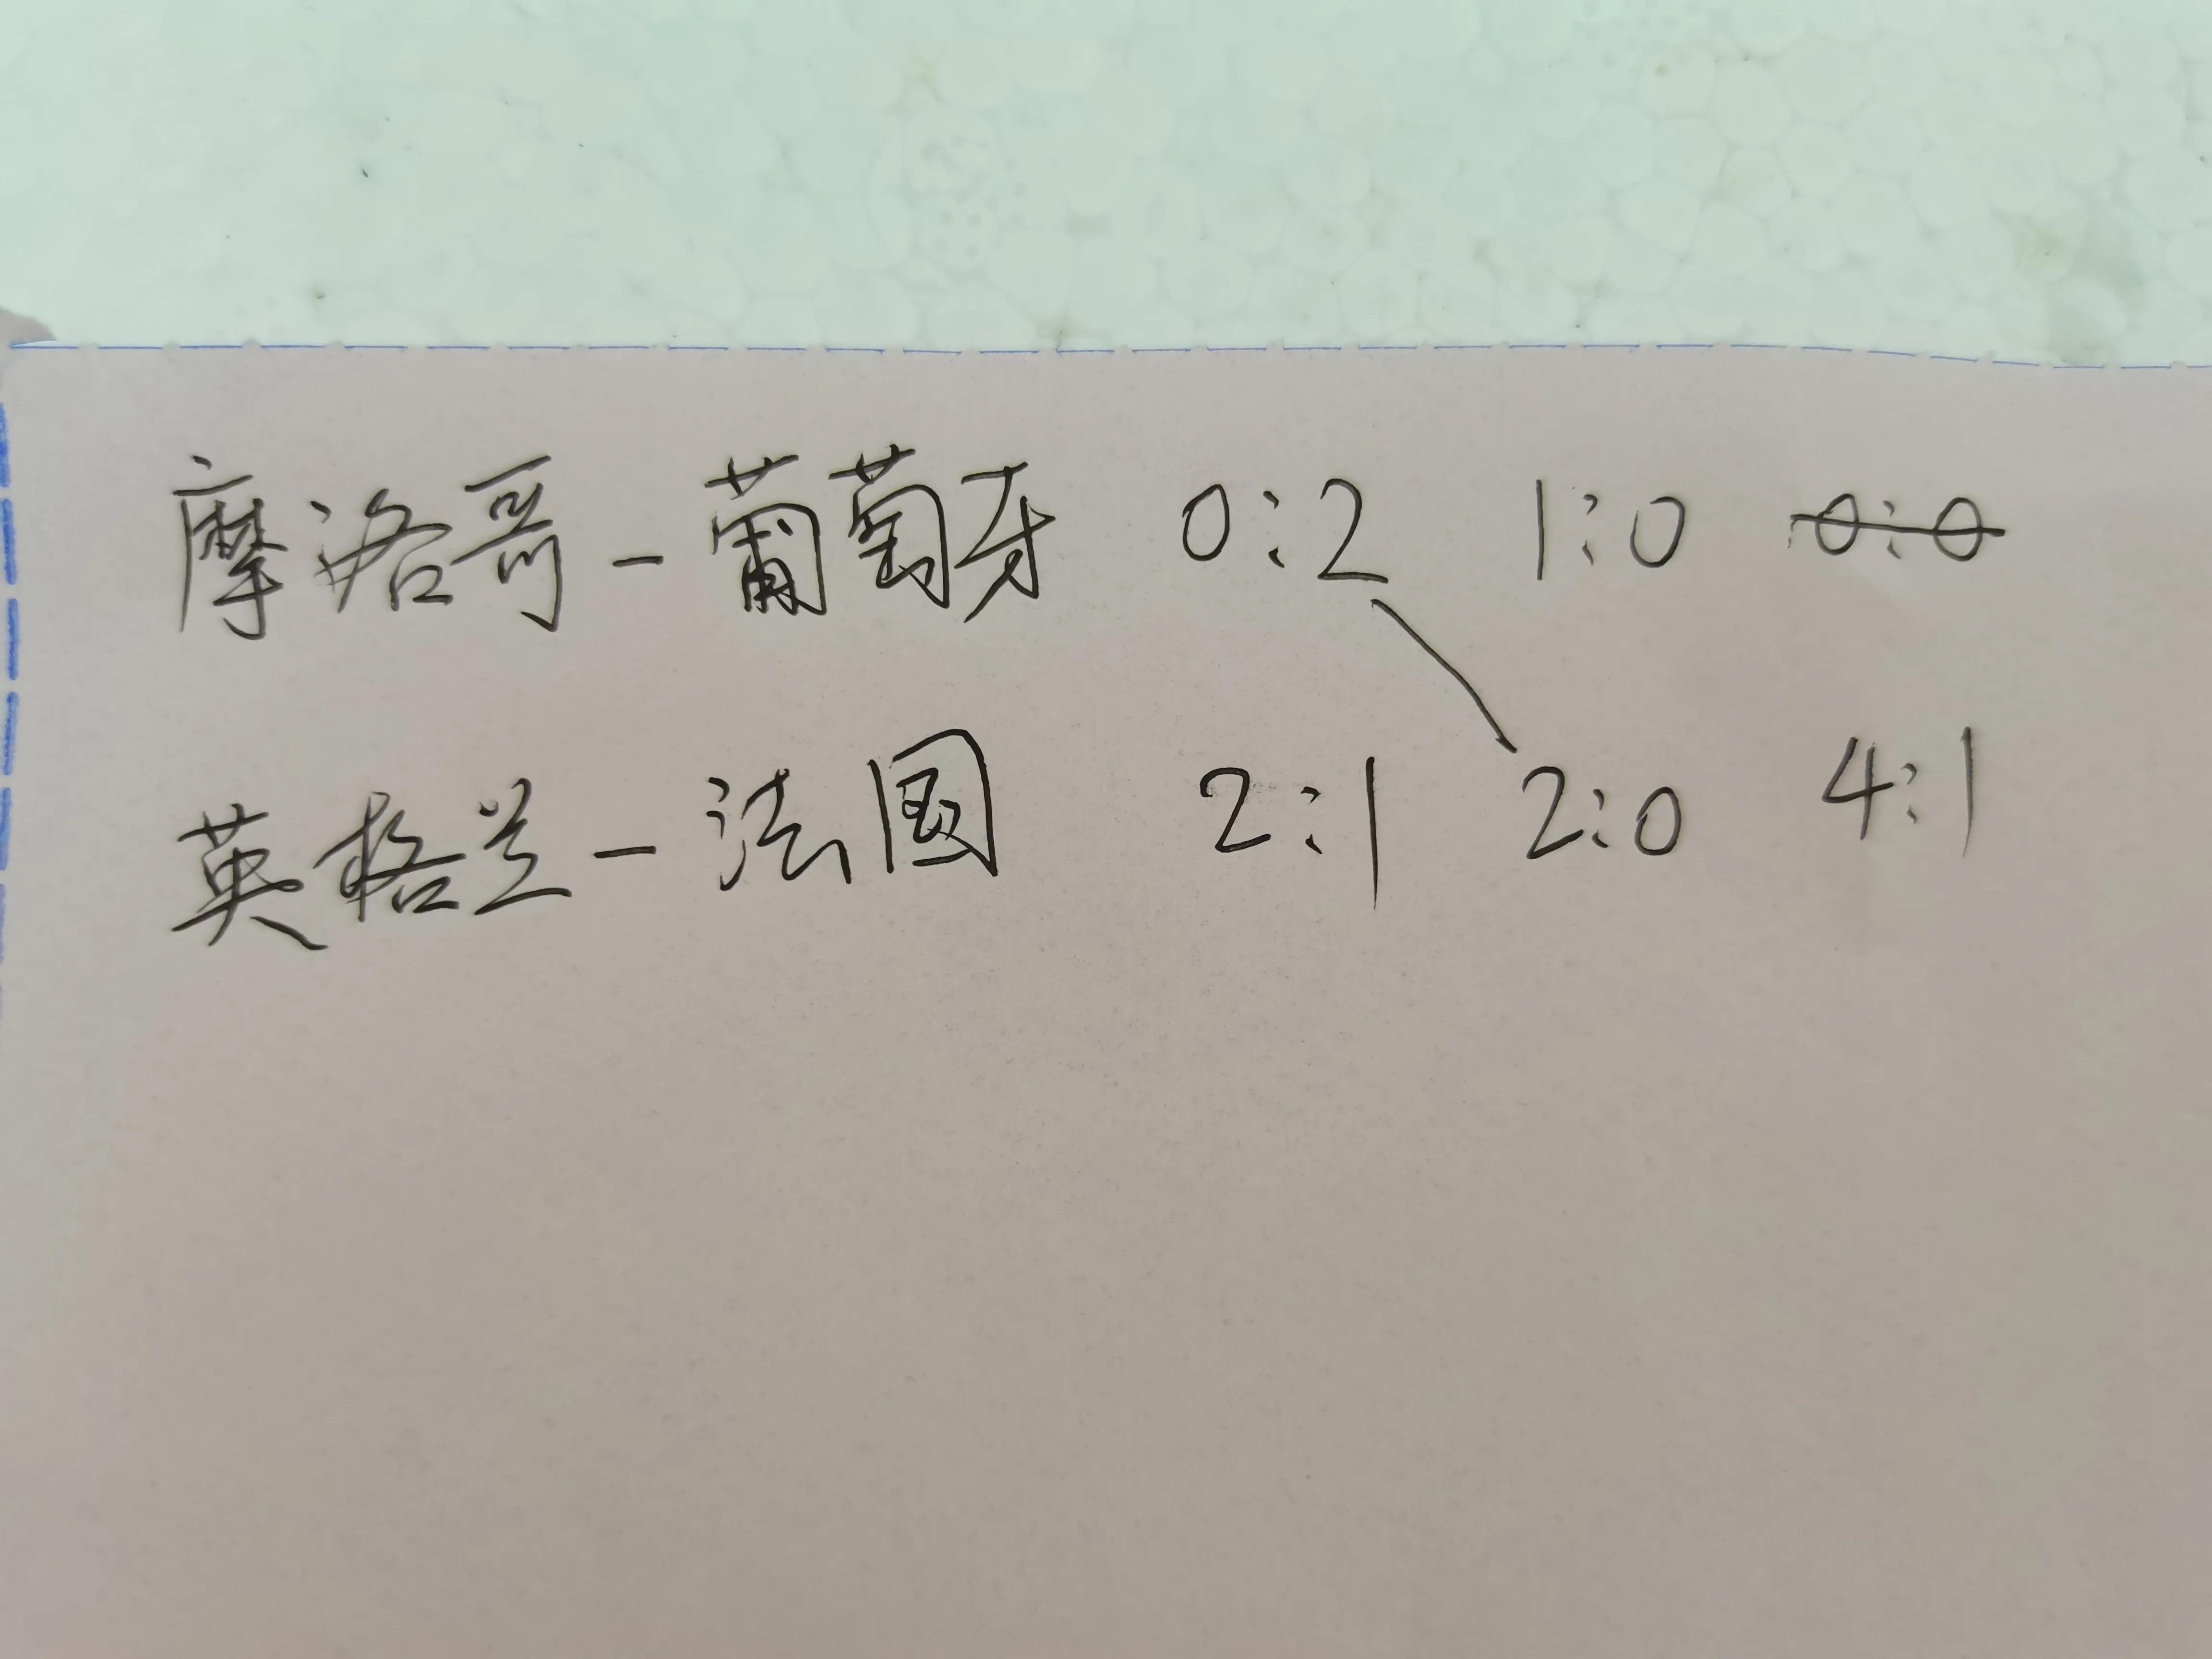 摩洛哥-葡萄牙 0:2 1:0 0:0
英格兰-法国 2:1 2:0 4:1